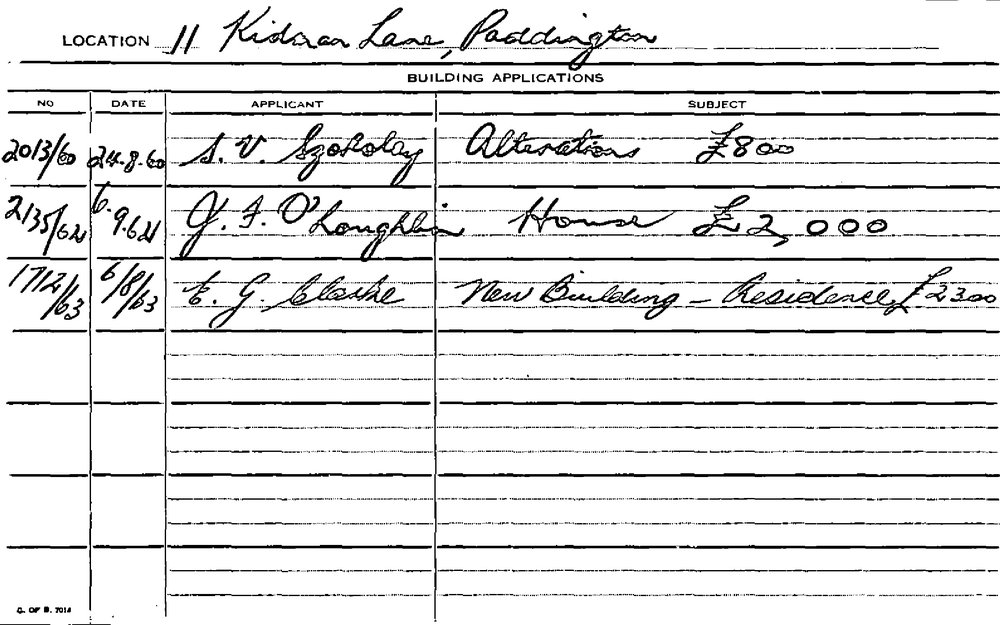 LOCATION 11 Kidman Lane, Paddington
BUILDING APPLICATIONS
NO DATE APPLICANT SUBJECT
2013/60 24.8.60 S. V. Szokolay Alterations £800
2135/62 6.9.62 J. F. O'Loughlin House £2,000
1712/63 6/8/63 E. G. Clarke New Building - Residence £2300
C. OF B. 7014